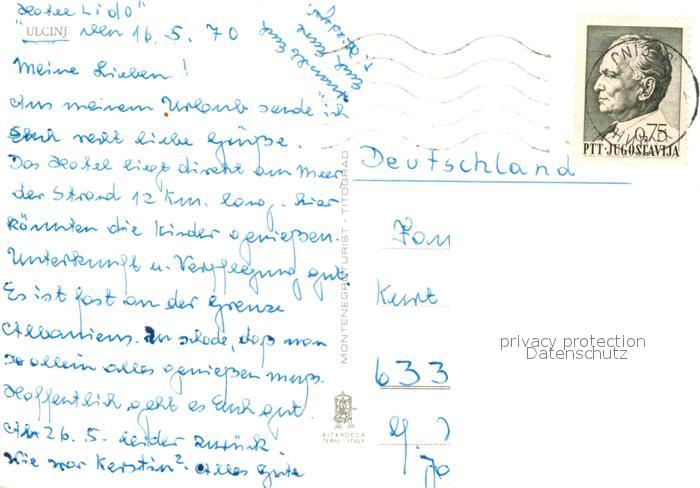 Hotel Lido"
"ULCINJ den 16.5.70
Meine Lieben!
Aus meinem Urlaub sende ich
Euch recht liebe Grüße.
Das Hotel liegt direkt am Meer
der Strand 12 Km. lang. Hier
könnten die Kinder genießen.
Unterkunft u. Verpflegung gut.
Es ist fast an der Grenze
Albaniens. Zu schade, daß man
so allein alles genießen muß.
Hoffentlich geht es Euch gut.
Am 26.5. leider zurück.
Wie war Kerstin? Alles Gute
Deutschland
Fam
Kurt
633
PTT·JUGOSLAVIJA
0.75
MONTENEGROTURIST - TITOGRAD
ALTEROCCA
TERNI - ITALY
privacy protection
Datenschutz